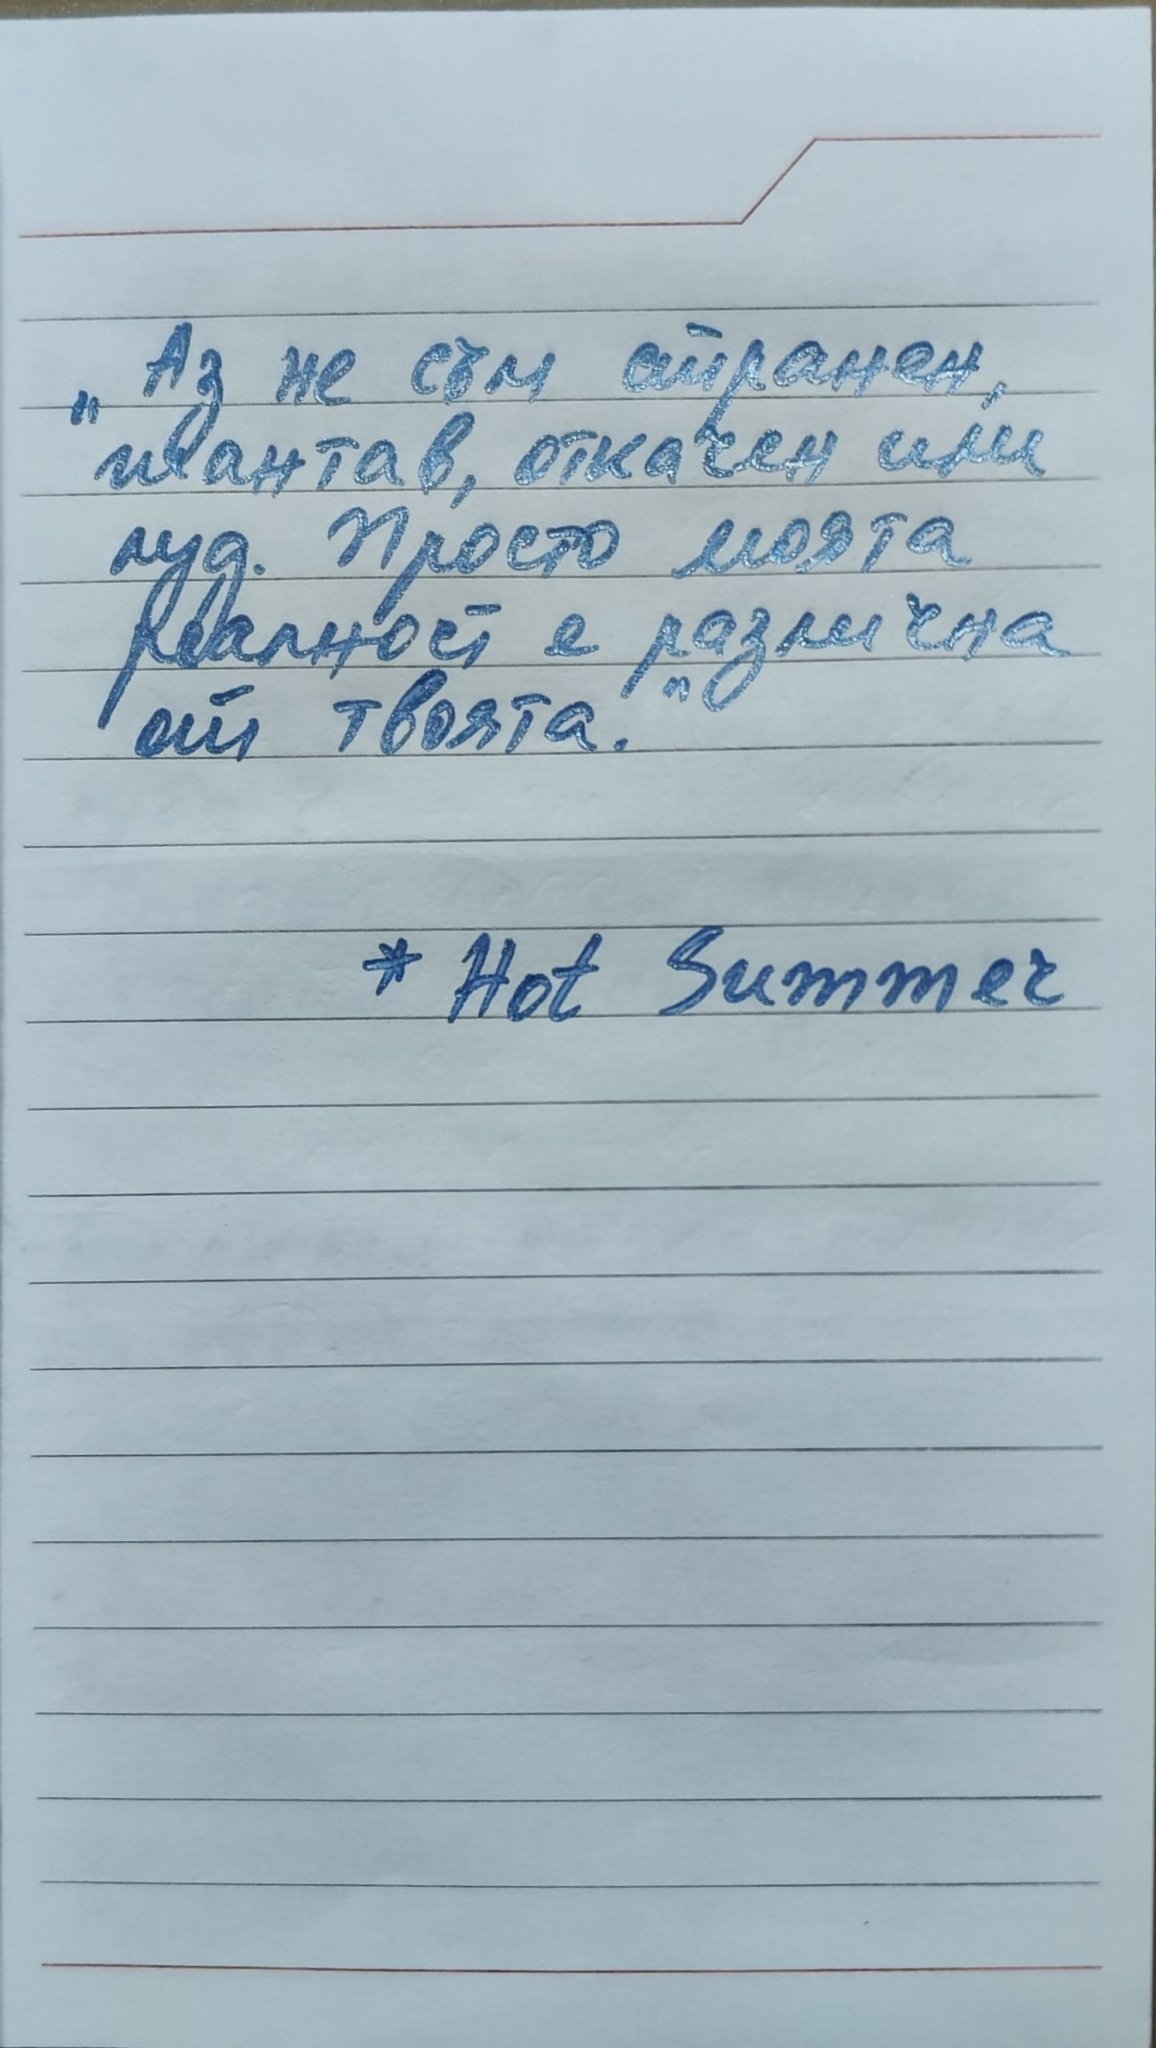 „Аз не съм странен,
шантав, откачен или
луд. Просто моята
реалност е различна
от твоята."
* Hot Summer